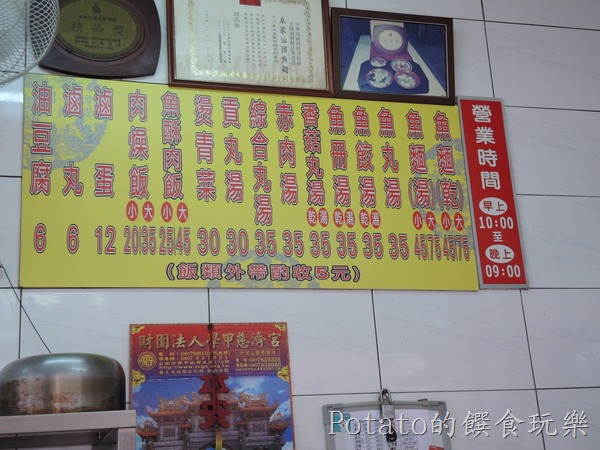 精品獎
卓家汕頭魚麵
魚麵(乾) 小 大 45 75
魚麵(湯) 小 大 45 75
魚丸湯 35
魚餃湯 乾 湯 35
魚冊湯 乾 湯 35
香菇丸湯 乾 湯 35
赤肉湯 35
綜合丸湯 35
貢丸湯 30
燙青菜 30
魚酥肉飯 小 大 25 45
肉燥飯 小 大 20 35
滷蛋 12
滷丸 6
油豆腐 6
(飯類外帶酌收5元)
營業時間
早上
10:00
至
晚上
09:00
財團法人學甲慈濟宮
Potato的饌食玩樂